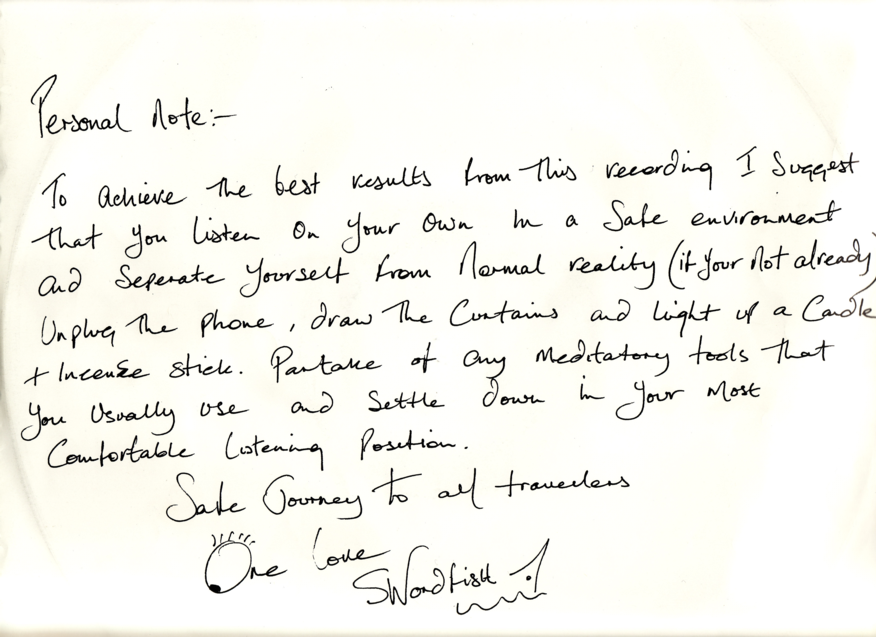 Personal Note:-
To achieve the best results from this recording I Suggest
that you listen On Your Own In a Safe environment
and Seperate Yourself from Normal reality (if your not already)
Unplug the phone, draw the Curtains and light up a Candle
+ Incense stick. Partake of any meditatory tools that
You Usually use and settle down in Your Most
Comfortable listening Position.
Safe Journey to all travellers
One Love
SWordfish